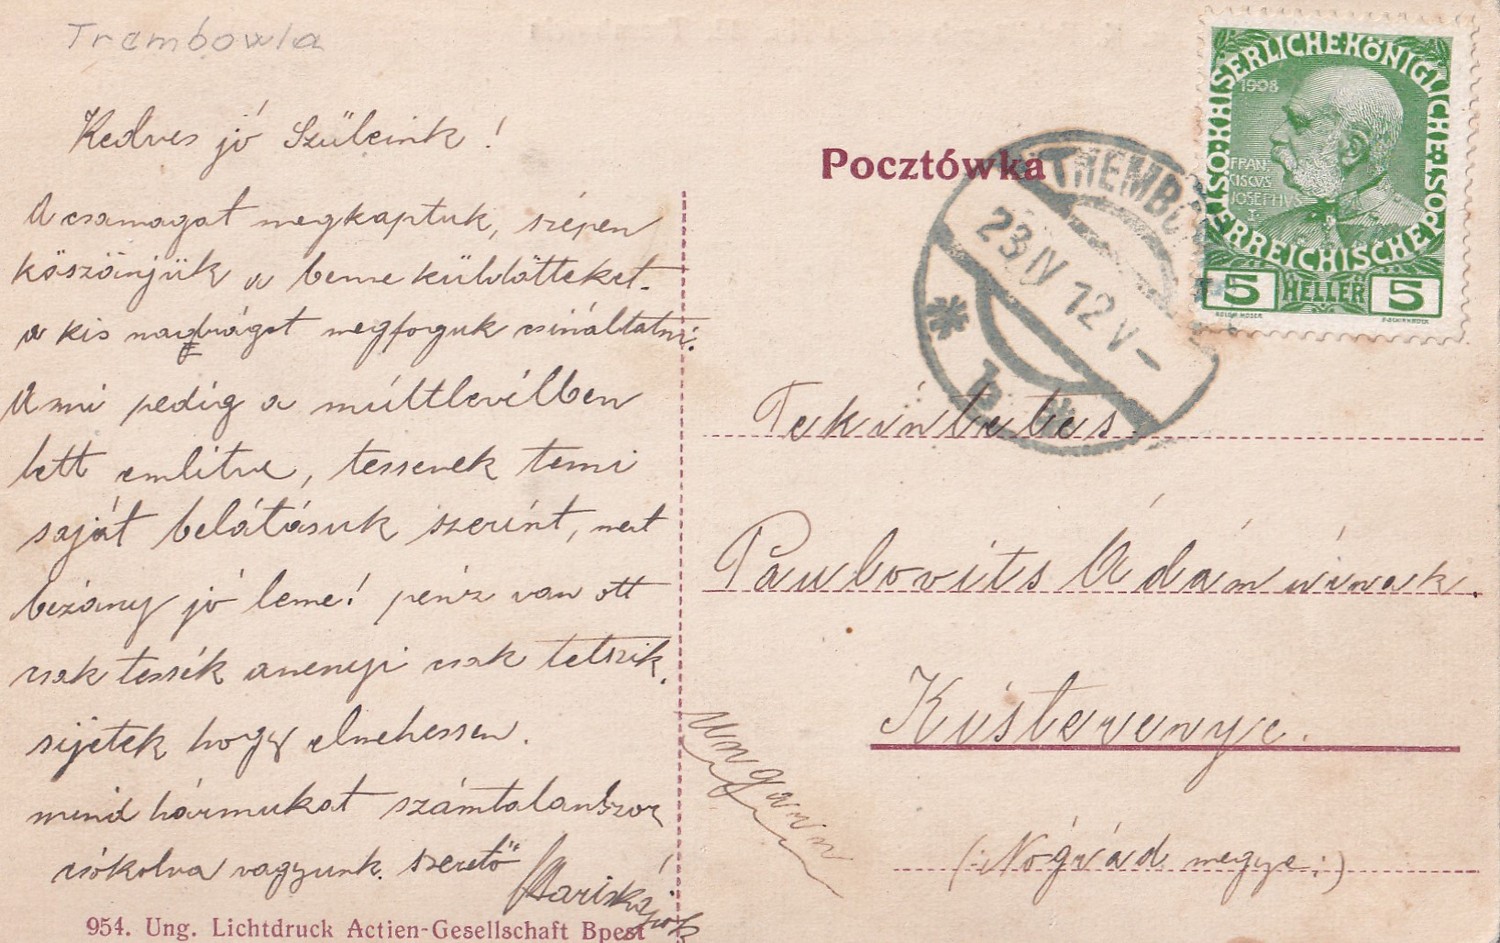 Trembowla
Kedves jó Szüleink!
A csomagot megkaptuk, szépen
köszönjük a benne küldötteket.
a kis nadrágot megfogjuk csináltatni.
Ami pedig a múltlevélben
lett emlitve, tessenek tenni
saját belátásuk szerint, mert
bizony jó lenne! pénz van ott
csak tessék annyi csak tetszik.
sijetek hogy elmehessen.
mind hármukat számtalanszor
csókolva vagyunk. szerető
Mariskájok
954. Ung. Lichtdruck Actien-Gesellschaft Bpest
Pocztówka
TREMBO
23 IV 12 V–
* b *
KAISERLICHE KÖNIGLICHE ÖSTERREICHISCHE POST
1908
FRAN
CISCVS
IOSEPHVS
I
5 HELLER 5
Tekintetes
Paulovits Ádám úrnak.
Kisterenye.
(: Nógrád megye :)
Ungarn